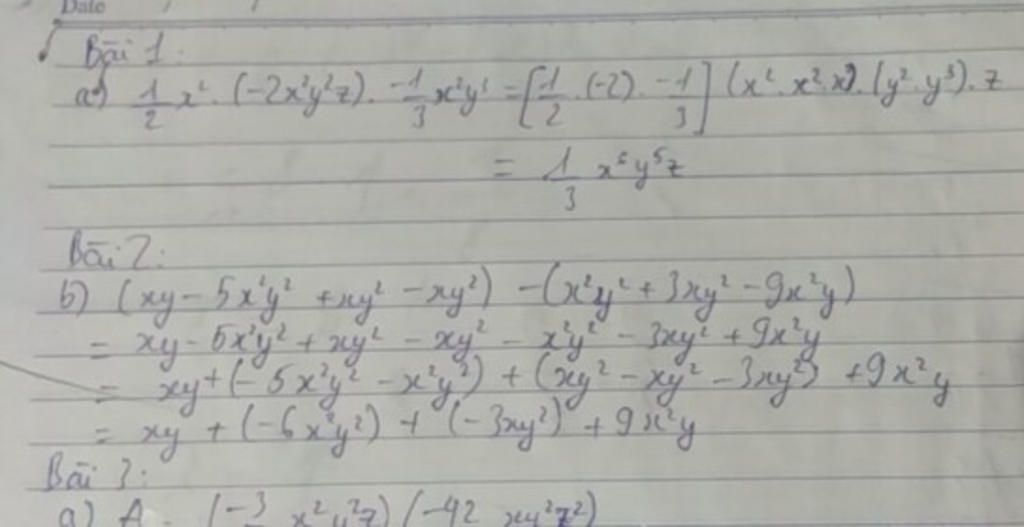 Date
Bài 1:
a) 1/2 x². (-2x²y²z). -1/3 x²y³ = [1/2 .(-2). -1/3] (x². x². x²). (y². y³). z
= 1/3 x⁶y⁵z
Bài 2:
b) (xy - 5x²y² + xy² - xy²) - (x²y² + 3xy² - 9x²y)
= xy - 5x²y² + xy² - xy² - x²y² - 3xy² + 9x²y
= xy + (-5x²y² - x²y²) + (xy² - xy² - 3xy²) + 9x²y
= xy + (-6x²y²) + (-3xy²) + 9x²y
Bài 3:
a) A (-3 x²y²z) (-42 xy²z²)